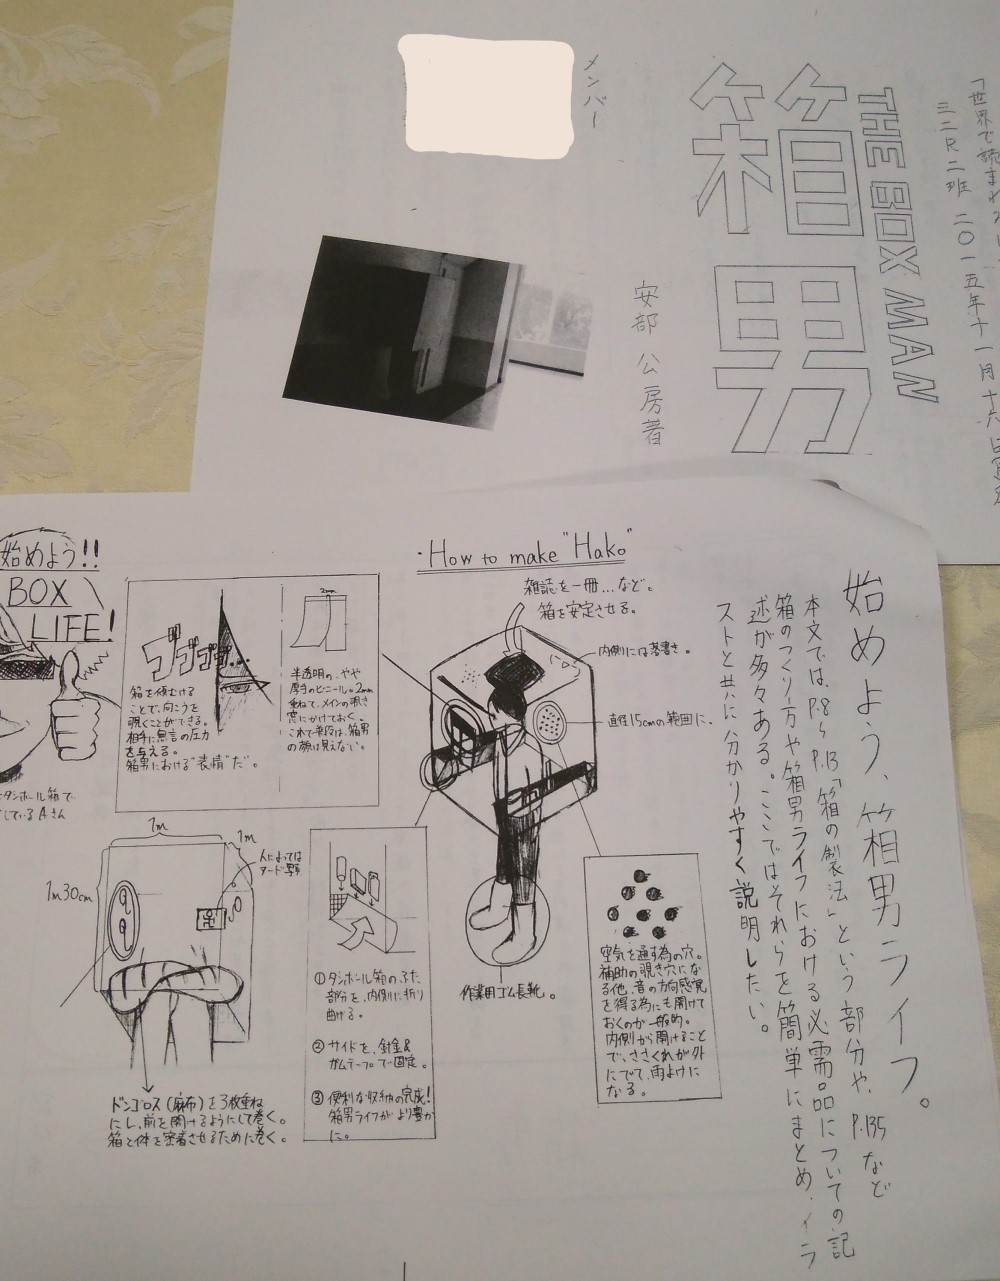 「世界で読まれ
ミニR二班 二〇一五年十一月十六日
THE BOX MAN
箱男
安部公房著
メンバー
始めよう、箱男ライフ。
本文では、P.8〜P.13「箱の製法」という部分や、P.135など
箱のつくり方や箱男ライフにおける必需品についての記
述が多々ある。ここではそれらを簡単にまとめ、イラ
ストと共に分かりやすく説明したい。
・How to make "Hako"
雑誌を一冊…など。
箱を安定させる。
内側には落書き。
直径15cmの範囲に。
作業用ゴム長靴。
空気を通す為の穴。
補助の覗き穴にな
る他、音の方向感覚
を得る為にも開けて
おくのが一般的。
内側から開けること
で、ささくれが外
にでて、雨よけに
なる。
2mm
半透明の、やや
厚手のビニール。2mm
重ねて、メインの覗き
窓にかけておく。
これで普段は、箱男
の顔は見えない。
ゴゴゴゴ…
箱を傾むける
ことで、向こうを
覗くことができる。
相手に無言の圧力
を与える。
箱男における"表情"だ。
①ダンボール箱のふた
部分を、内側に折り
曲げる。
②サイドを、針金&
ガムテープで固定。
③便利な収納の完成!
箱男ライフがより豊か
に。
始めよう!!
BOX
LIFE!
ダンボール箱で
しているAさん
1m
1m
1m30cm
人によっては
ドンゴロス(麻布)を3枚重ね
にし、前を開けるようにして巻く。
箱と体を密着させるために巻く。